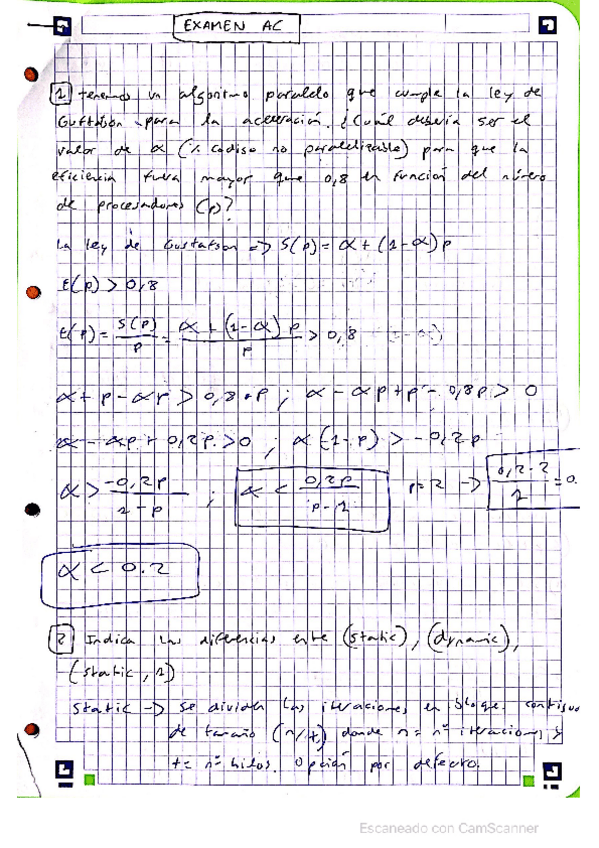 EXAMEN AC
1 Tenemos un algoritmo paralelo que cumple la ley de
Gustafson para la aceleración. ¿Cuál debería ser el
valor de α (% código no paralelizable) para que la
eficiencia fuera mayor que 0,8 en función del número
de procesadores (p)?
La ley de Gustafson => S(p) = α + (1-α) p
E(p) > 0,8
E(p) = S(p)/p = α + (1-α) p / p > 0,8
α + p - αp > 0,8 · p ; α - αp + p - 0,8p > 0
α - αp + 0,2p > 0 ; α (1-p) > -0,2p
α > -0,2p / 1-p ; α < 0,2p / p-1 p=2 -> 0,2·2 / 1 = 0.
α < 0.2
2 Indica las diferencias entre (static), (dynamic),
(static, 1)
Static -> Se dividen las iteraciones en bloque contiguo
de tamaño (n/t) donde n = nº iteraciones y
t = nº hilos. Opción por defecto.
Escaneado con CamScanner